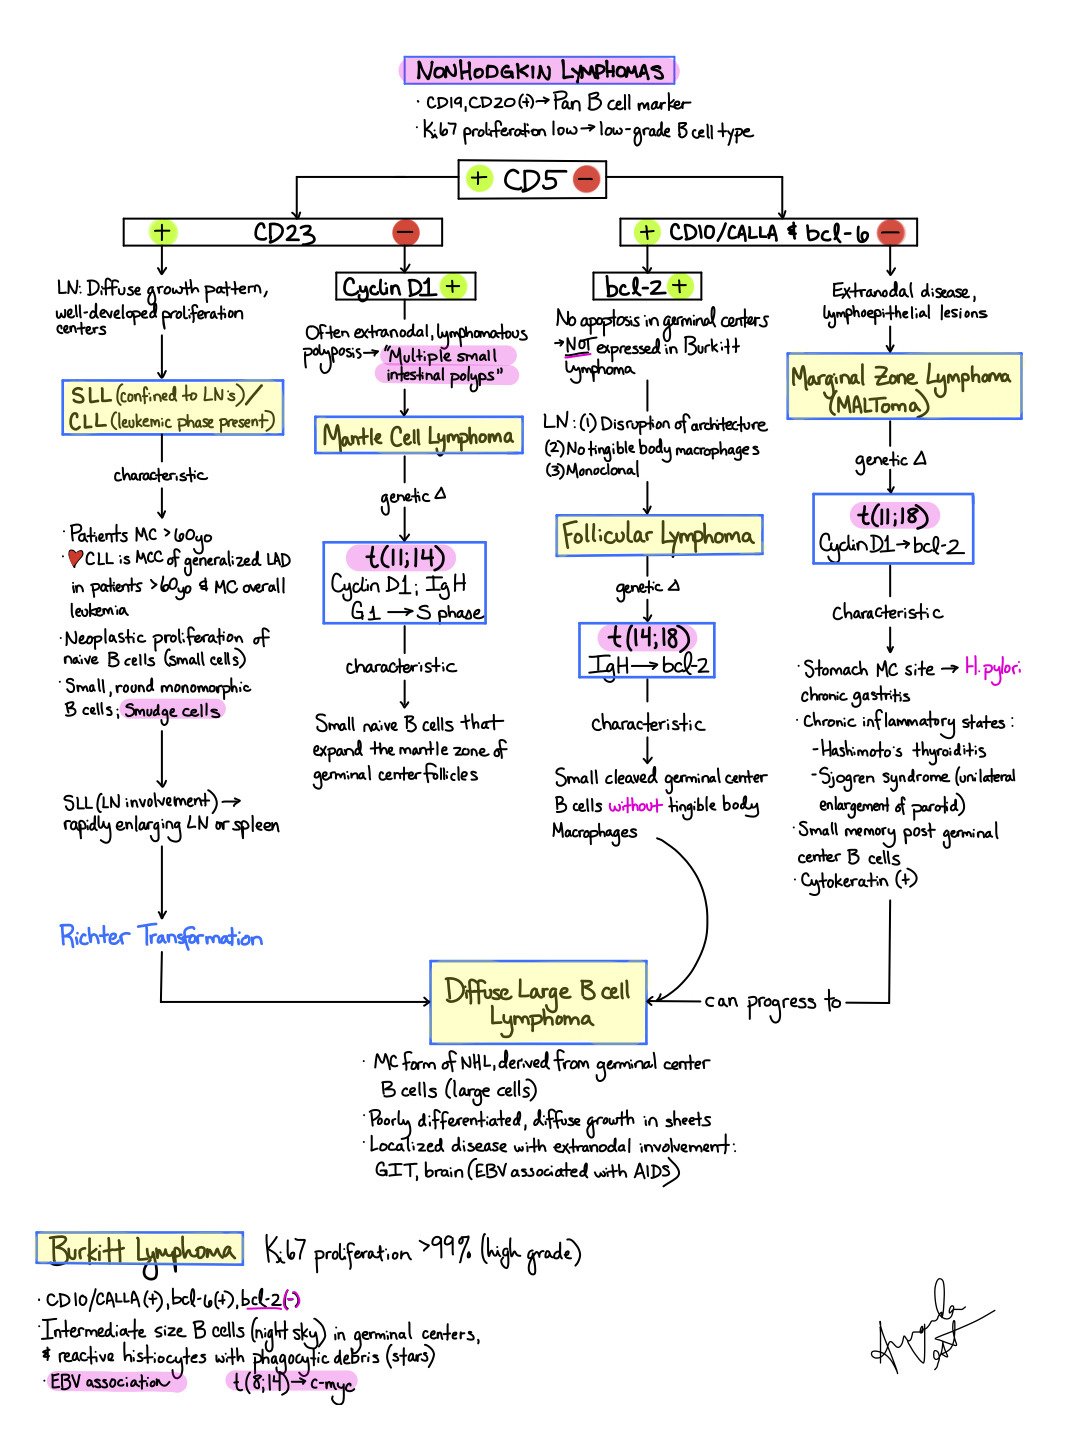 NONHODGKIN LYMPHOMAS
· CD19, CD20 (+) → Pan B cell marker
· Ki67 proliferation low → low-grade B cell type
+ CD5 −
+ CD23 −
LN: Diffuse growth pattern,
well-developed proliferation
centers
SLL (confined to LN's)/
CLL (leukemic phase present)
characteristic
· Patients MC > 60yo
· ♥ CLL is MCC of generalized LAD
in patients >60yo & MC overall
leukemia
· Neoplastic proliferation of
naive B cells (small cells)
· Small, round monomorphic
B cells; Smudge cells
SLL (LN involvement) →
rapidly enlarging LN or spleen
Richter Transformation
Cyclin D1 +
Often extranodal, lymphomatous
polyposis → "Multiple small
intestinal polyps"
Mantle Cell Lymphoma
genetic Δ
t(11;14)
Cyclin D1; IgH
G1 → S phase
characteristic
Small naive B cells that
expand the mantle zone of
germinal center follicles
+ CD10/CALLA & bcl-6 −
bcl-2 +
No apoptosis in germinal centers
→ NOT expressed in Burkitt
lymphoma
LN: (1) Disruption of architecture
(2) No tingible body macrophages
(3) Monoclonal
Follicular Lymphoma
genetic Δ
t(14;18)
IgH → bcl-2
characteristic
Small cleaved germinal center
B cells without tingible body
Macrophages
Extranodal disease,
lymphoepithelial lesions
Marginal Zone Lymphoma
(MALToma)
genetic Δ
t(11;18)
Cyclin D1 → bcl-2
Characteristic
· Stomach MC site → H. pylori
chronic gastritis
· Chronic inflammatory states:
- Hashimoto's thyroiditis
- Sjogren syndrome (unilateral
enlargement of parotid)
· Small memory post germinal
center B cells
· Cytokeratin (+)
can progress to
Diffuse Large B cell
Lymphoma
· MC form of NHL, derived from germinal center
B cells (large cells)
· Poorly differentiated, diffuse growth in sheets
· Localized disease with extranodal involvement:
GIT, brain (EBV associated with AIDS)
Burkitt Lymphoma Ki67 proliferation >99% (high grade)
· CD10/CALLA (+), bcl-6(+), bcl-2(-)
· Intermediate size B cells (night sky) in germinal centers,
& reactive histiocytes with phagocytic debris (stars)
· EBV association t(8;14) → c-myc